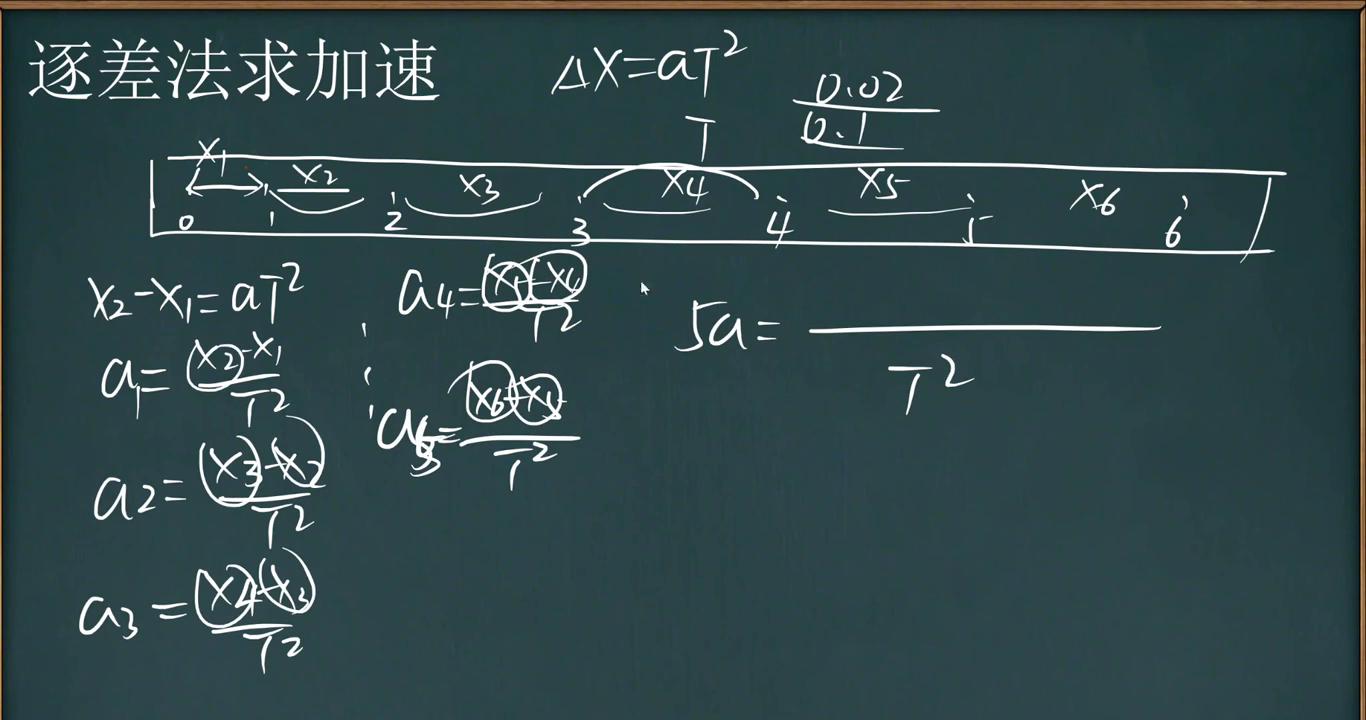 逐差法求加速
ΔX=aT²
0.02
0.1
T
X₁ X₂ X₃ X₄ X₅ X₆
0 1 2 3 4 5 6
X₂-X₁=aT²
a₁=X₂-X₁/T²
a₂=X₃-X₂/T²
a₃=X₄-X₃/T²
a₄=X₅-X₄/T²
a₅=X₆-X₅/T²
5a=
T²